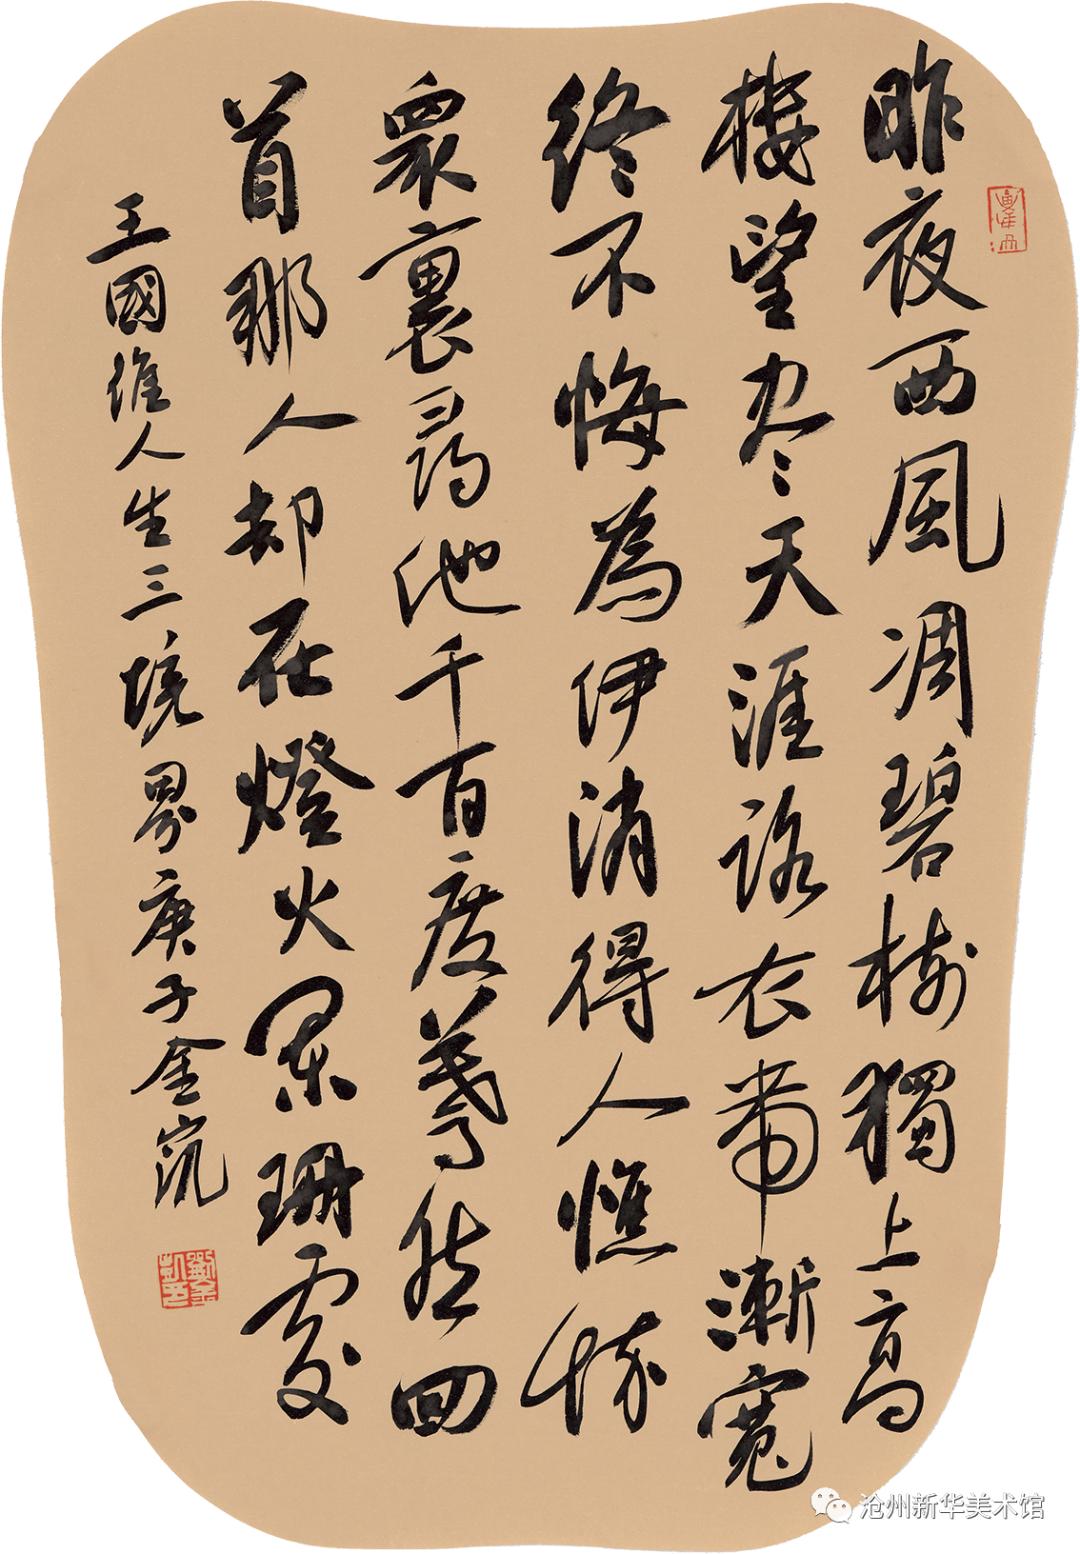 昨夜西風凋碧樹獨上高
樓望尽天涯路衣帶漸寬
終不悔為伊消得人憔悴
衆裏尋他千百度驀然回
首那人却在燈火闌珊處
王國維人生三境界庚子金
沧州新华美术馆